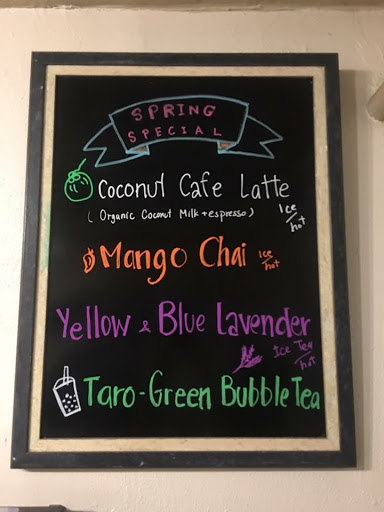 SPRING
SPECIAL
Coconut Cafe Latte
(Organic Coconut Milk + espresso)
Ice/hot
Mango Chai Ice/hot
Yellow & Blue Lavender
Ice Tea/hot
Taro-Green Bubble Tea